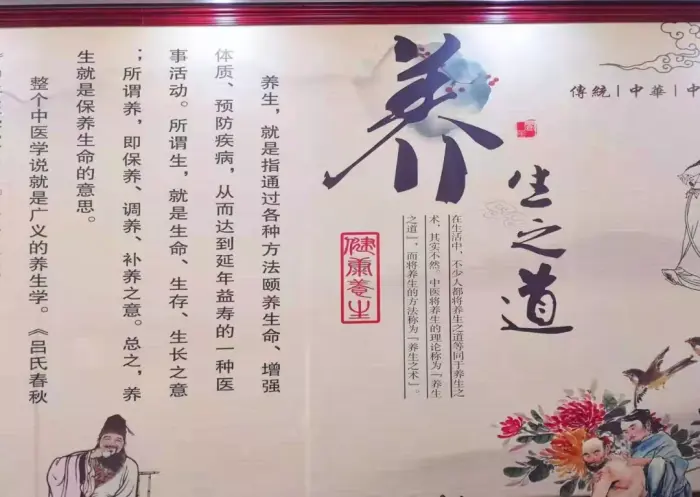 傳統|中華|中
养生之道
在生活中，不少人都将养生之道等同于养生之
术，其实不然。中医将养生的理论称为『养生
之道』，而将养生的方法称为『养生之术』。
健康養生
养生，就是指通过各种方法颐养生命、增强
体质、预防疾病，从而达到延年益寿的一种医
事活动。所谓生，就是生命、生存、生长之意
；所谓养，即保养、调养、补养之意。总之，养
生就是保养生命的意思。
整个中医学说就是广义的养生学。《吕氏春秋